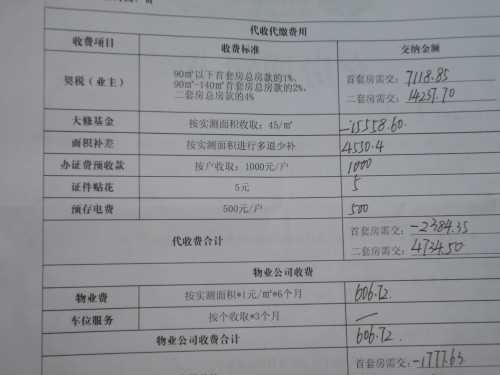 代收代缴费用
收费项目 收费标准 交纳金额
契税（业主） 90㎡以下首套房总房款的1%、
90㎡-140㎡首套房总房款的2%、
二套房总房款的4%
首套房需交：7118.85
二套房需交：14237.70
大修基金 按实测面积收取：45/㎡ -15558.60
面积补差 按实测面积进行多退少补 4550.4
办证费预收款 按户收取：1000元/户 1000
证件贴花 5元 5
预存电费 500元/户 500
代收费合计 首套房需交：-2384.35
二套房需交：4734.50
物业公司收费
物业费 按实测面积*1元/㎡*6个月 606.72
车位服务 按个收取*3个月 —
物业公司收费合计 606.72
首套房需交：-1777.63